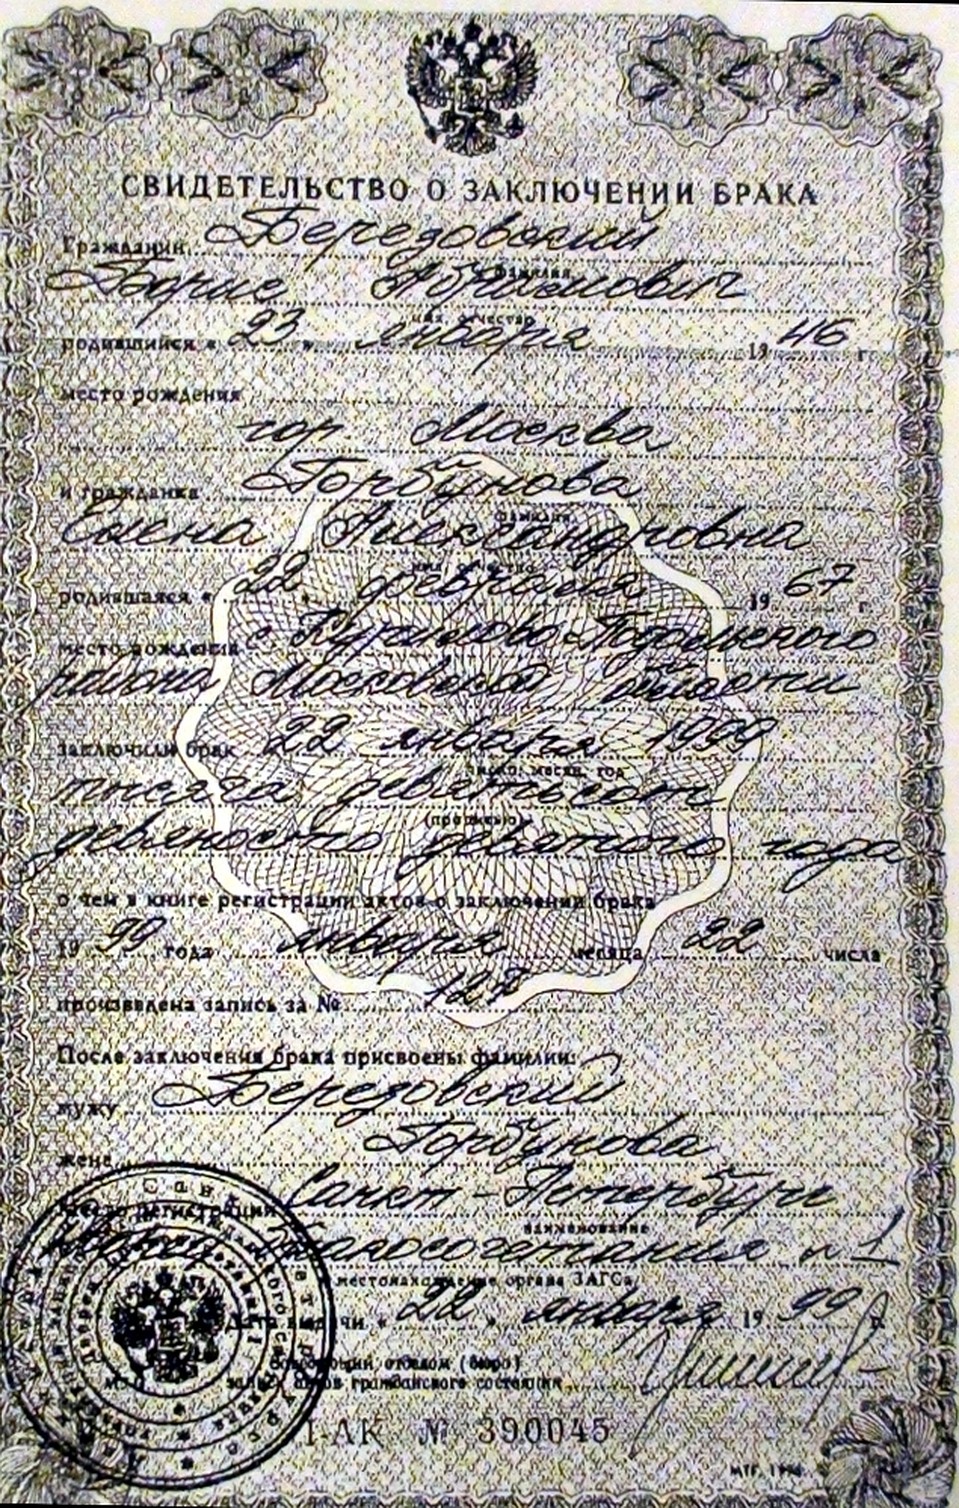 СВИДЕТЕЛЬСТВО О ЗАКЛЮЧЕНИИ БРАКА
Гражданин Березовский
фамилия
Борис Абрамович
имя, отчество
родившийся « 23 » января 19 46 г.
место рождения
гор. Москва
и гражданка Горбунова
фамилия
Елена Александровна
имя, отчество
родившаяся « 22 » февраля 19 67 г.
место рождения с. Подольского
района Московской области
заключили брак 22 января 1999
число, месяц, год
тысяча девятьсот
(прописью)
девяносто девятого года
о чем в книге регистрации актов о заключении брака
19 99 года января месяца 22 числа
произведена запись за № 127
После заключения брака присвоены фамилии:
мужу Березовский
жене Горбунова
Место регистрации Санкт-Петербург
наименование
Дворец Бракосочетания n 1
местонахождение органа ЗАГСа
Дата выдачи « 22 » января 19 99 г.
Заведующий отделом (бюро)
М.П. записи актов гражданского состояния
I-АК № 390045